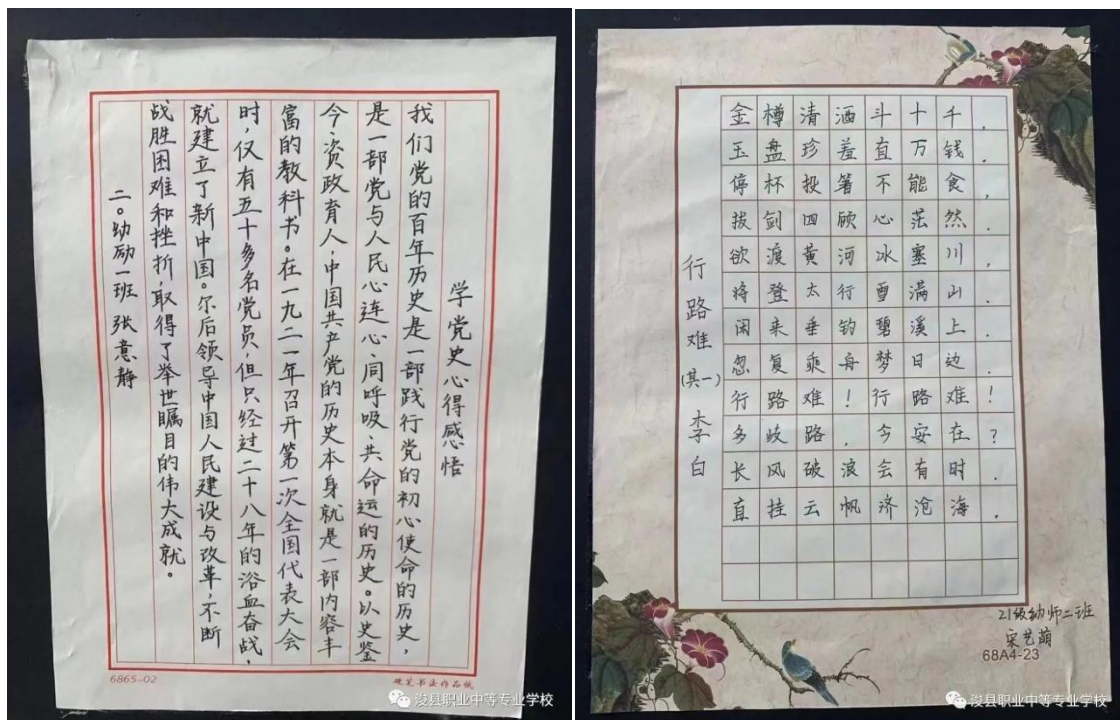 学党史心得感悟
我们党的百年历史是一部践行党的初心使命的历史，
是一部党与人民心连心、同呼吸、共命运的历史。以史鉴
今，资政育人，中国共产党的历史本身就是一部内容丰
富的教科书。在一九二一年召开第一次全国代表大会
时，仅有五十多名党员，但只经过二十八年的浴血奋战，
就建立了新中国。尔后领导中国人民建设与改革，不断
战胜困难和挫折，取得了举世瞩目的伟大成就。
二〇幼励一班 张意静
6865-02
硬笔书法作品纸
浚县职业中等专业学校
行路难(其一) 李白
金樽清酒斗十千，
玉盘珍羞直万钱。
停杯投箸不能食，
拔剑四顾心茫然。
欲渡黄河冰塞川，
将登太行雪满山。
闲来垂钓碧溪上，
忽复乘舟梦日边。
行路难！行路难！
多歧路，今安在？
长风破浪会有时，
直挂云帆济沧海。
21级幼师二班
宋艺萌
68A4-23
浚县职业中等专业学校